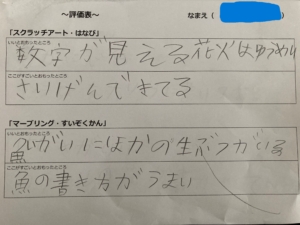 ～評価表～
なまえ（　　　　）
「スクラッチアート・はなび」
いいとおもったところ
数字が見える花火はゆうめい
ここがすごいとおもったところ
さいげんできてる
「マーブリング・すいぞくかん」
いいとおもったところ
魚いがいにほかの生ぶつがいる
ここがすごいとおもったところ
魚の書き方がうまい